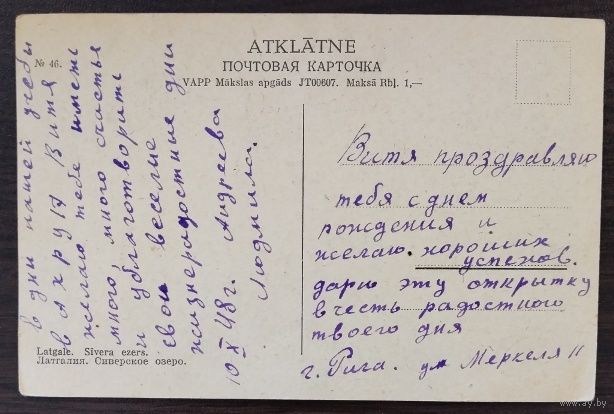 ATKLĀTNE
№ 46.
ПОЧТОВАЯ КАРТОЧКА
VAPP Mākslas apgāds JT00607. Maksā Rbļ. 1,—
в дни нашей учебы
Витя
желаю тебе иметь
много много счастья
и ублаготворить
свои веселые
жизнерадостные дни
10 X 48 г. Андреева
Людмила.
Витя проздравляю
тебя с днем
рождения и
желаю хороших
успехов.
дарю эту открытку
в честь радостного
твоего дня
г. Рига. ул Меркеля 11
Latgale. Sivera ezers.
Латгалия. Сиверское озеро.
www.ay.by